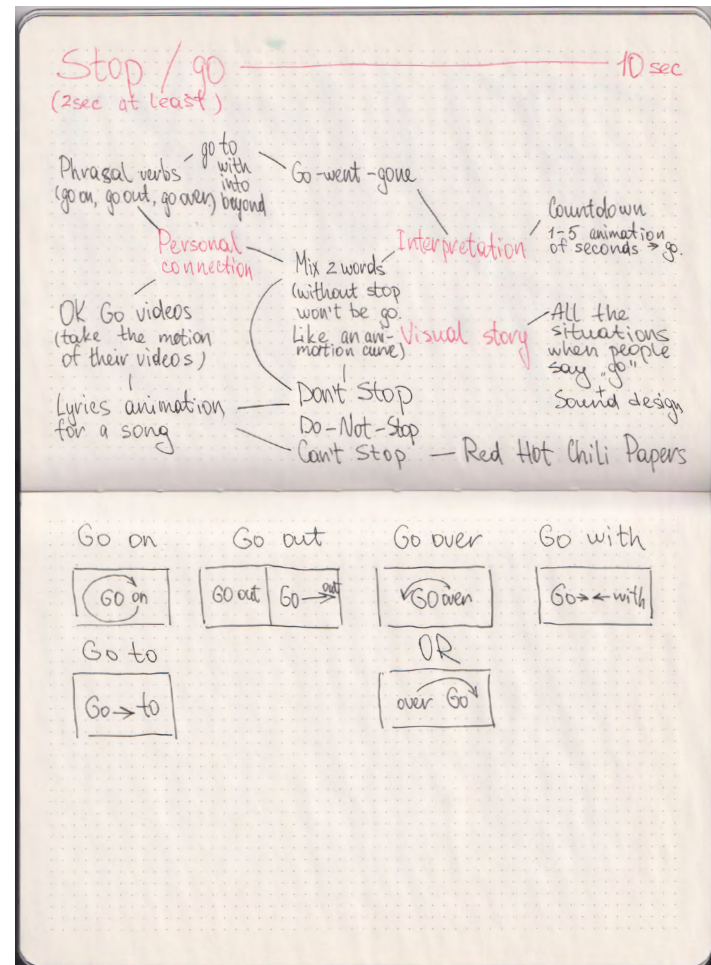 Stop / go
10 sec
(2sec at least)
Phrasal verbs
(go on, go out, go over)
go to
with
into
beyond
Go-went-gone
Personal
connection
Interpretation
Countdown
1-5 animation
of seconds → go.
Mix 2 words
(without stop
won't be go.
Like an ani-
motion curve)
OK Go videos
(take the motion
of their videos)
Visual story
All the
situations
when people
say „go"
+
Sound design
Lyrics animation
for a song
Don't Stop
Do-Not-Stop
Can't Stop — Red Hot Chili Papers
Go on
Go out
Go over
Go with
GO on
GO out
Go → out
GO over
Go →← with
Go to
OR
Go → to
over Go